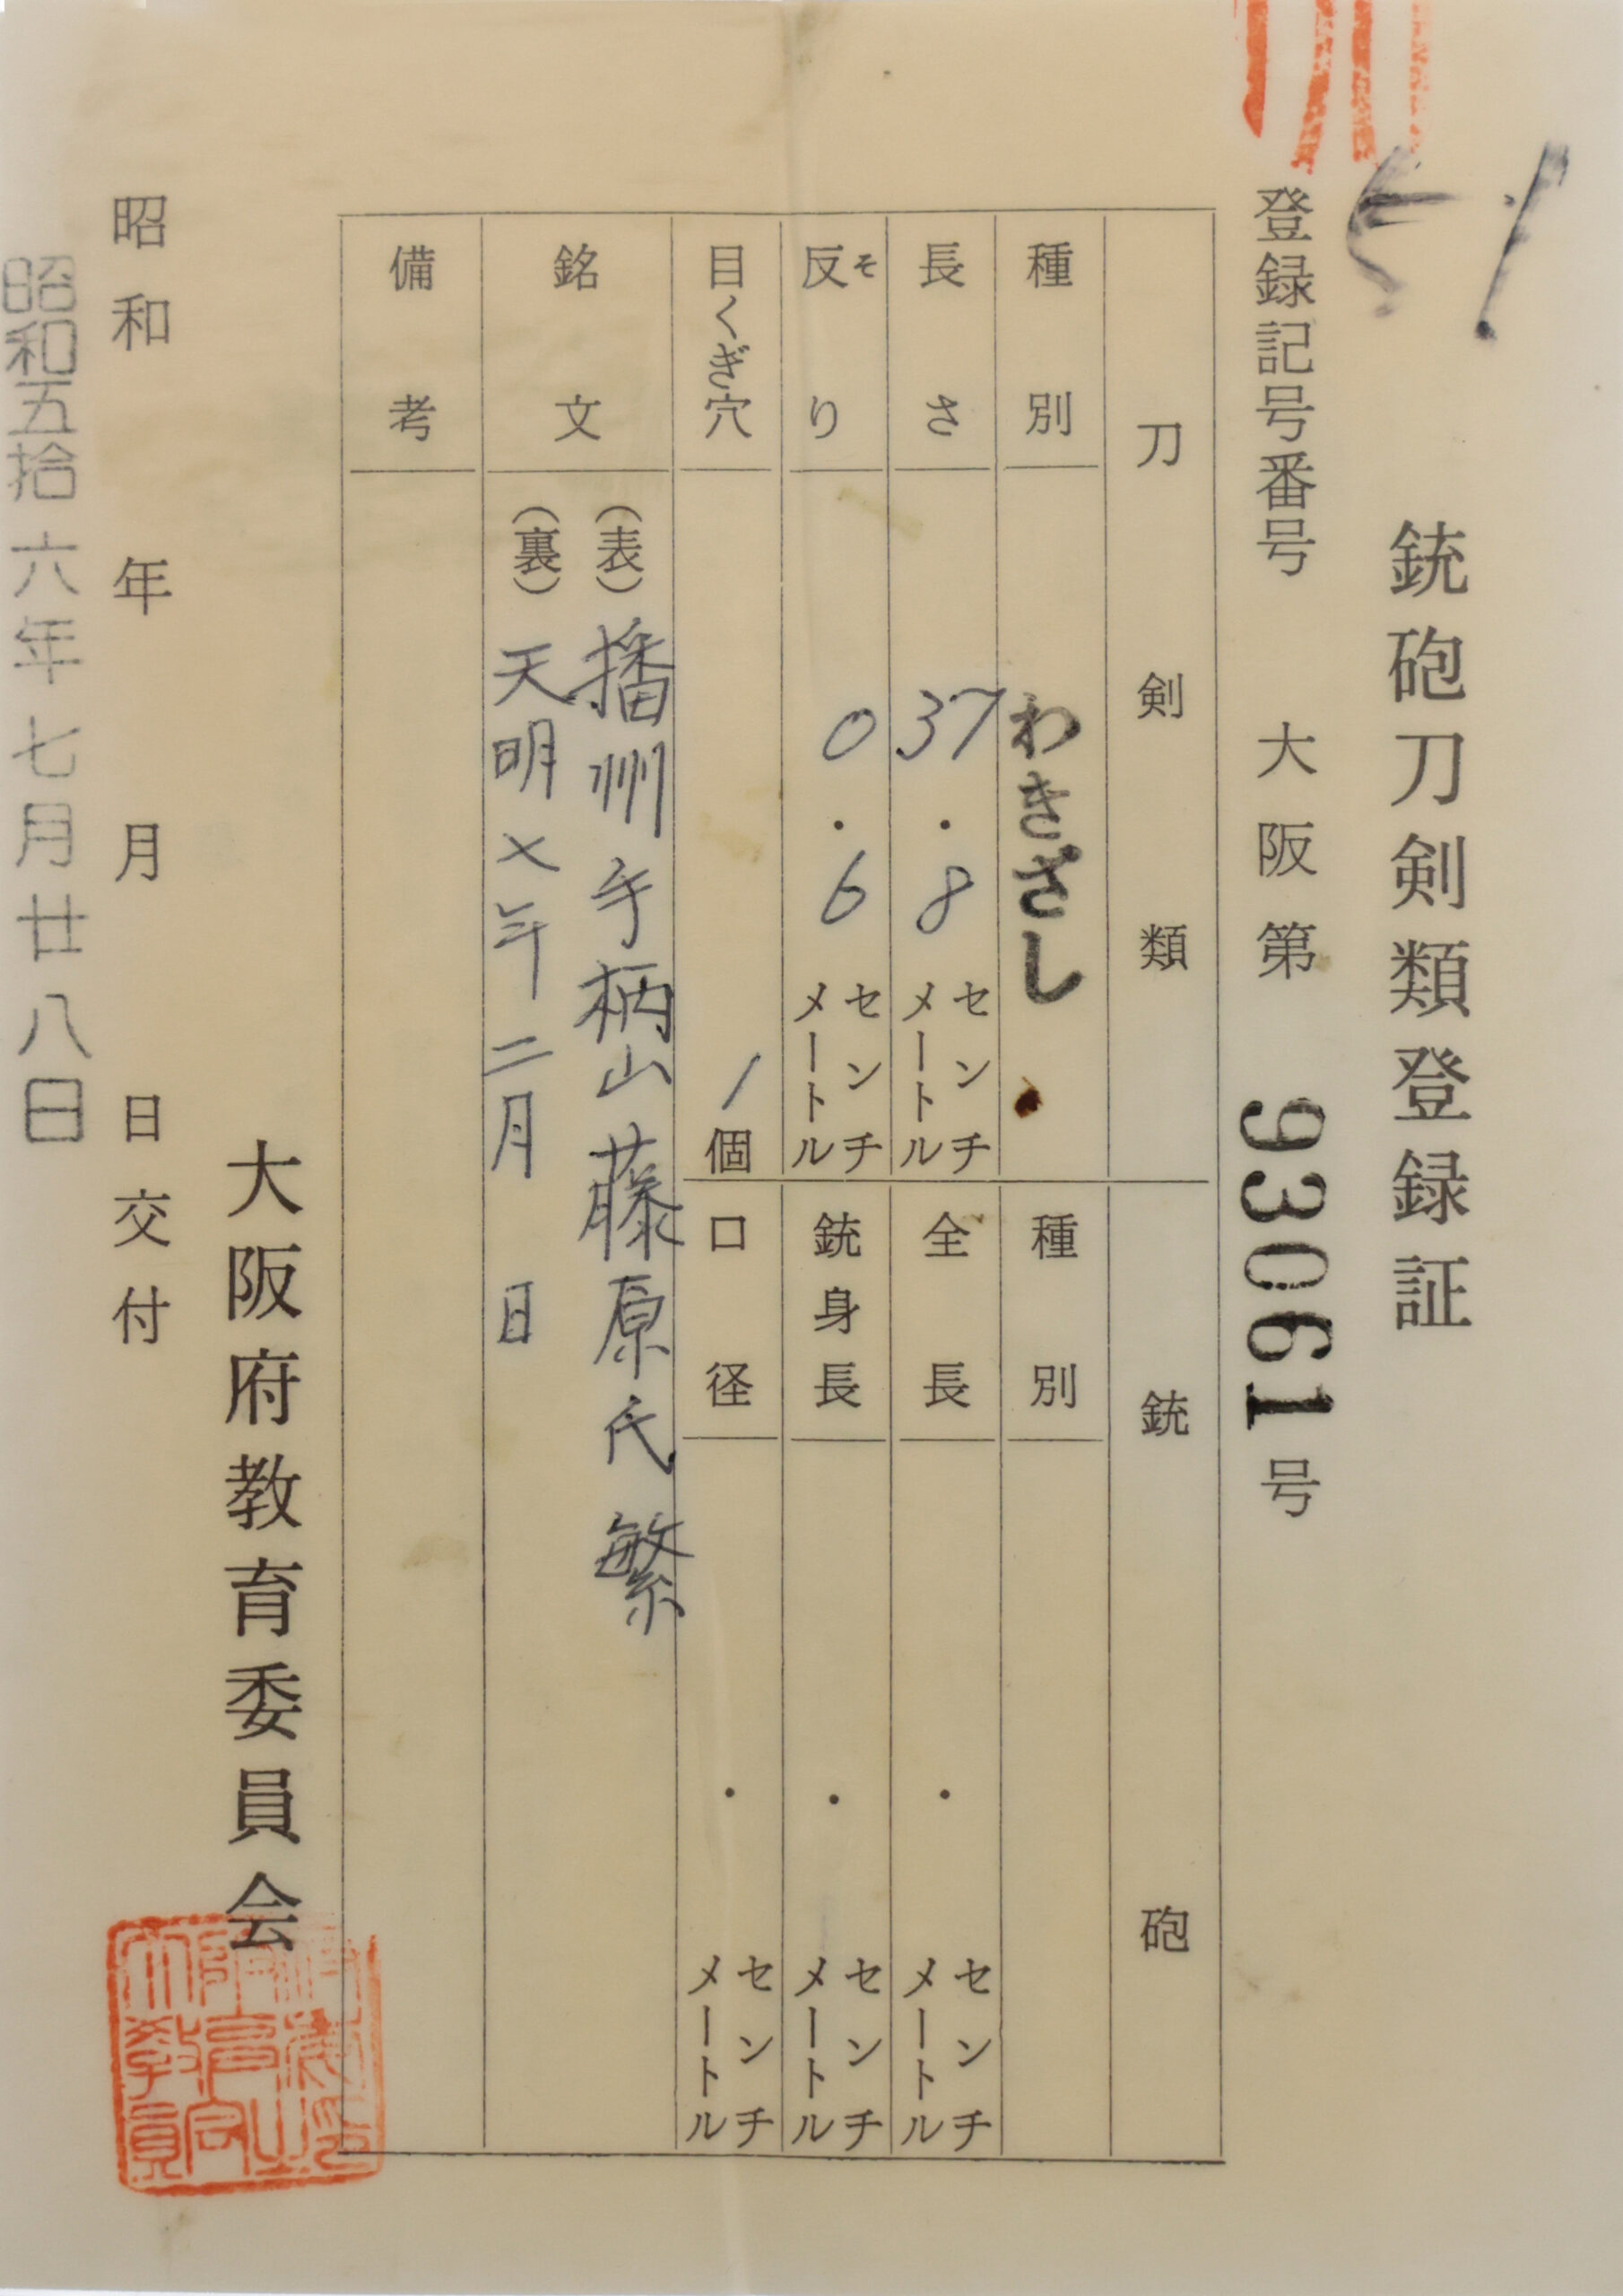 銃砲刀剣類登録証
登録記号番号 大阪第 93061 号
刀剣類
種別 わきざし
長さ 37.8 センチメートル
反り そ 0.6 センチメートル
目くぎ穴 1 個
銘文
(表) 播州手柄山藤原氏繁
(裏) 天明七年二月 日
備考
銃砲
種別
全長 . センチメートル
銃身長 . センチメートル
口径 . センチメートル
大阪府教育委員会
昭和 年 月 日交付
昭和五拾六年七月廿八日